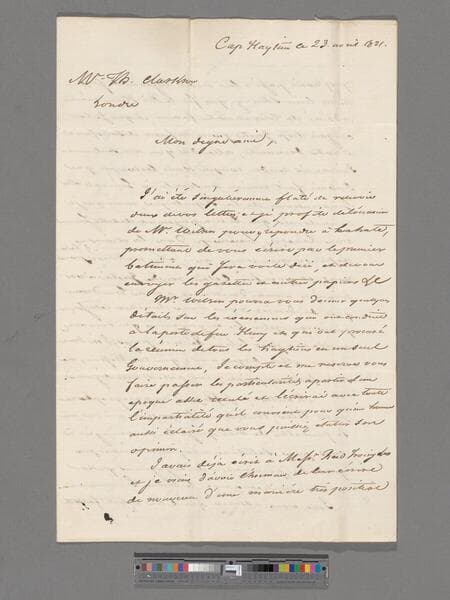 Cap Haytien le 23 avril 1821.
Mr. Th. Clarkson
Londre
Mon digne ami,
J'ai été singulièrement flaté de recevoir
deux de vos lettres, et je profite de l'occasion
de Mr. Wilson pour y repondre à la hate,
promettant de vous écrire par le premier
batiment qui fera voile d'ici, et de vous
envoyer les gazettes et autres papiers &c
Mr Wilson pourra vous donner quelques
détails sur les évènemens qui ont conduit
à la perte de feu Henry et qui ont procuré
la réunion de tous les haytiens en un seul
Gouvernement, Je compte et me reserve vous
faire passer les particularités aparté d'une
epoque assez reculé et l'écrirai avec toute
l'impartialité qu'il convient pour qu'un homme
aussi éclairé que vous puissiez statuer son
opinion.
J'avais déjà écrit à Messrs. Reid Irving &co
et je viens d'avoir l'honneur de leur écrire
de nouveau d'une manière très positive